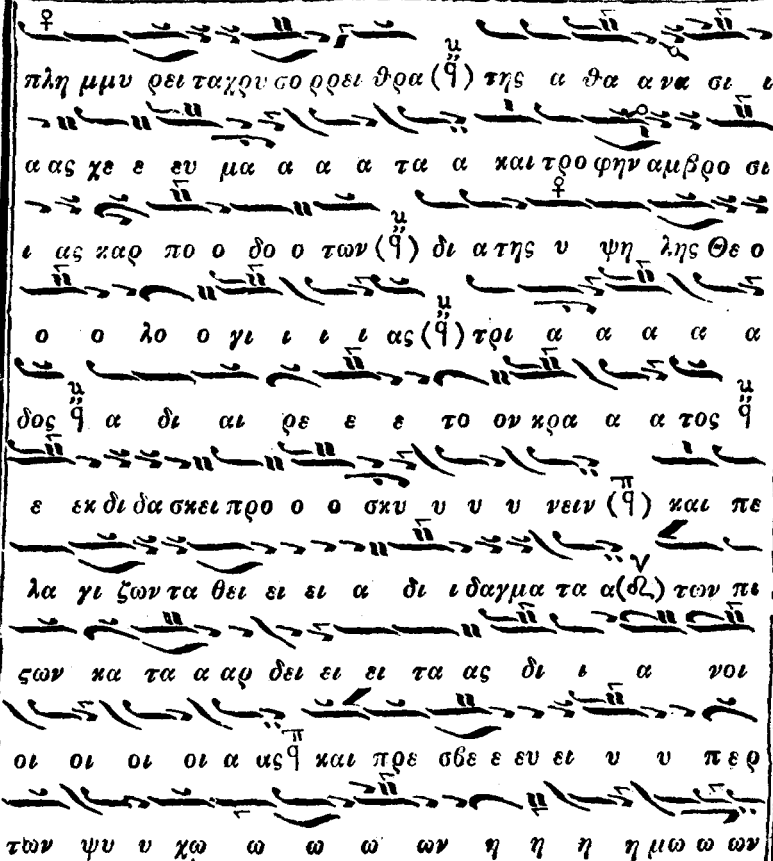 πλη μμυ ρει τα χρυ σο ρρει θρα (q̈) της α θα α να σι ι
α ας χε ε ευ μα α α α τα α και τρο φην αμβρο σι
ι ας καρ πο ο δο ο των (q̈) δι α της υ ψη λης Θε ο
ο ο λο ο γι ι ι ι ας (q̈) τρι α α α α α
δος q̈ α δι αι ρε ε ε το ον κρα α α τος q̈
ε εκ δι δα σκει προ ο ο σκυ υ υ υ νειν (q) και πε
λα γι ζων τα θει ει ει α δι ι δαγμα τα α () των πι
ςων κα τα α αρ δει ει ει τα ας δι ι α νοι
οι οι οι οι α ας q και πρε σβε ε ευ ει υ υ περ
των ψυ υ χω ω ω ω ω ων η η η η μω ω ων